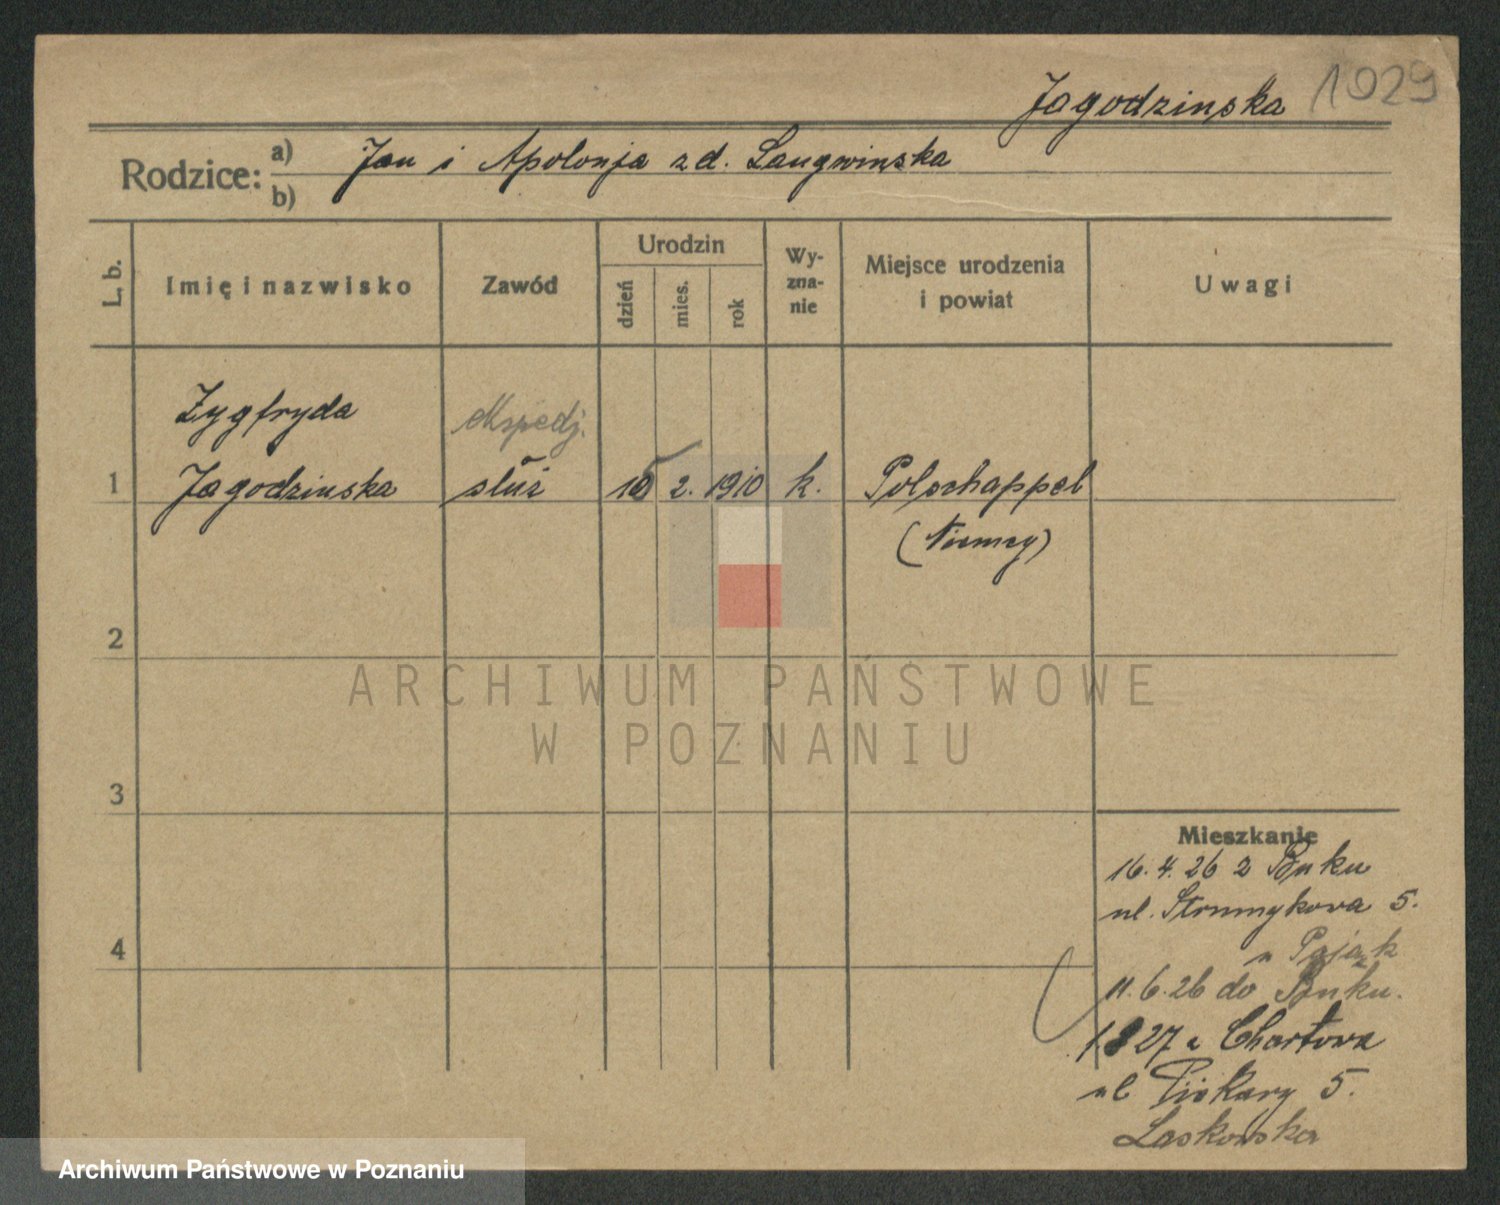 Jagodzinska 1029
Rodzice: a) Jan i Apolonja z d. Laugwinska
b)
L. b. Imię i nazwisko Zawód Urodzin dzień mies. rok Wy-zna-nie Miejsce urodzenia i powiat Uwagi
Zygfryda ekspedj.
1 Jagodzinska służ 2. 1910 k. Potschappel
(Niemcy)
2
ARCHIWUM PAŃSTWOWE
W POZNANIU
3
Mieszkanie
16.4.26 z Buku
ul. Strumykowa 5.
u Pająk
4
11.6.26 do Buku.
27 z Chartowa
ul Piekary 5.
Laskowska
Archiwum Państwowe w Poznaniu